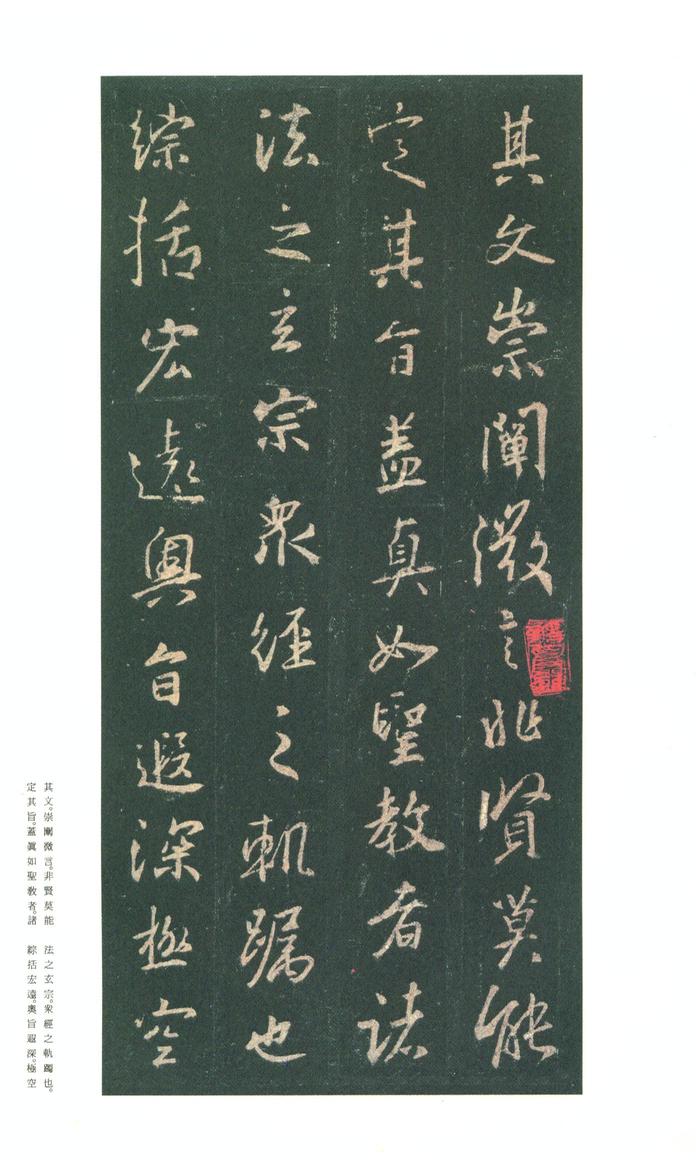 其文崇闡微言非賢莫能
定其旨蓋真如聖教者諸
法之玄宗衆經之軌躅也
綜括宏遠奧旨遐深極空
其文。崇闡微言。非賢莫能
定其旨。蓋眞如聖敎者。諸
法之玄宗。衆經之軌躅也。
綜括宏遠。奧旨遐深。極空